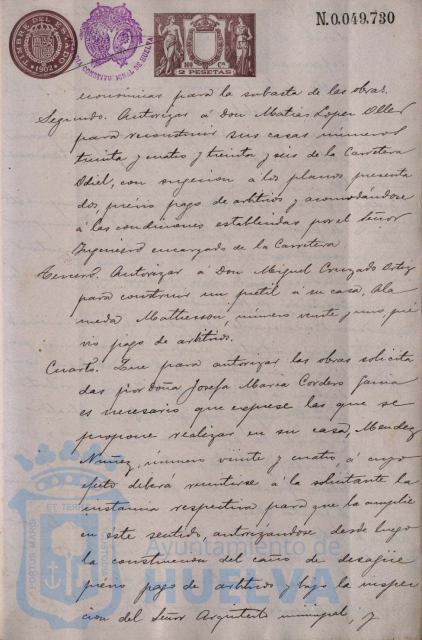 N.0.049.730
TIMBRE DEL ESTADO
1902
2 PESETAS
económicas para la subasta de las obras.
Segundo. Autorizar á don Matias Lopez Oller
para reconstruir sus casas números
treinta y cuatro y treinta y seis de la Carretera
Odiel, con sujecion á los planos presenta
dos, prévio pago de arbitrios y acomodándose
á las condiciones establecidas por el Señor
Ingeniero encargado de la Carretera
Tercero. Autorizar á Don Miguel Cruzado Ortiz
para construir un pretil á su casa, Ala
meda Matherson, número veinte y uno, pré
vio pago de arbitrios.
Cuarto. Que para autorizar las obras solicita
das por Doña Josefa Maria Cordero Gama
es necesario que esprese las que se
propone realizar en su casa, Mendez
Nuñez, número veinte y cuatro, á cuyo
efecto deberá remitirse á la solicitante la
instancia respectiva para que la amplie
en éste sentido, autorizándose, desde luego
la construccion del caño de desagüe
prévio pago de arbitrios y bajo la inspec
cion del Señor Arquitecto municipal, y
Ayuntamiento de
HUELVA